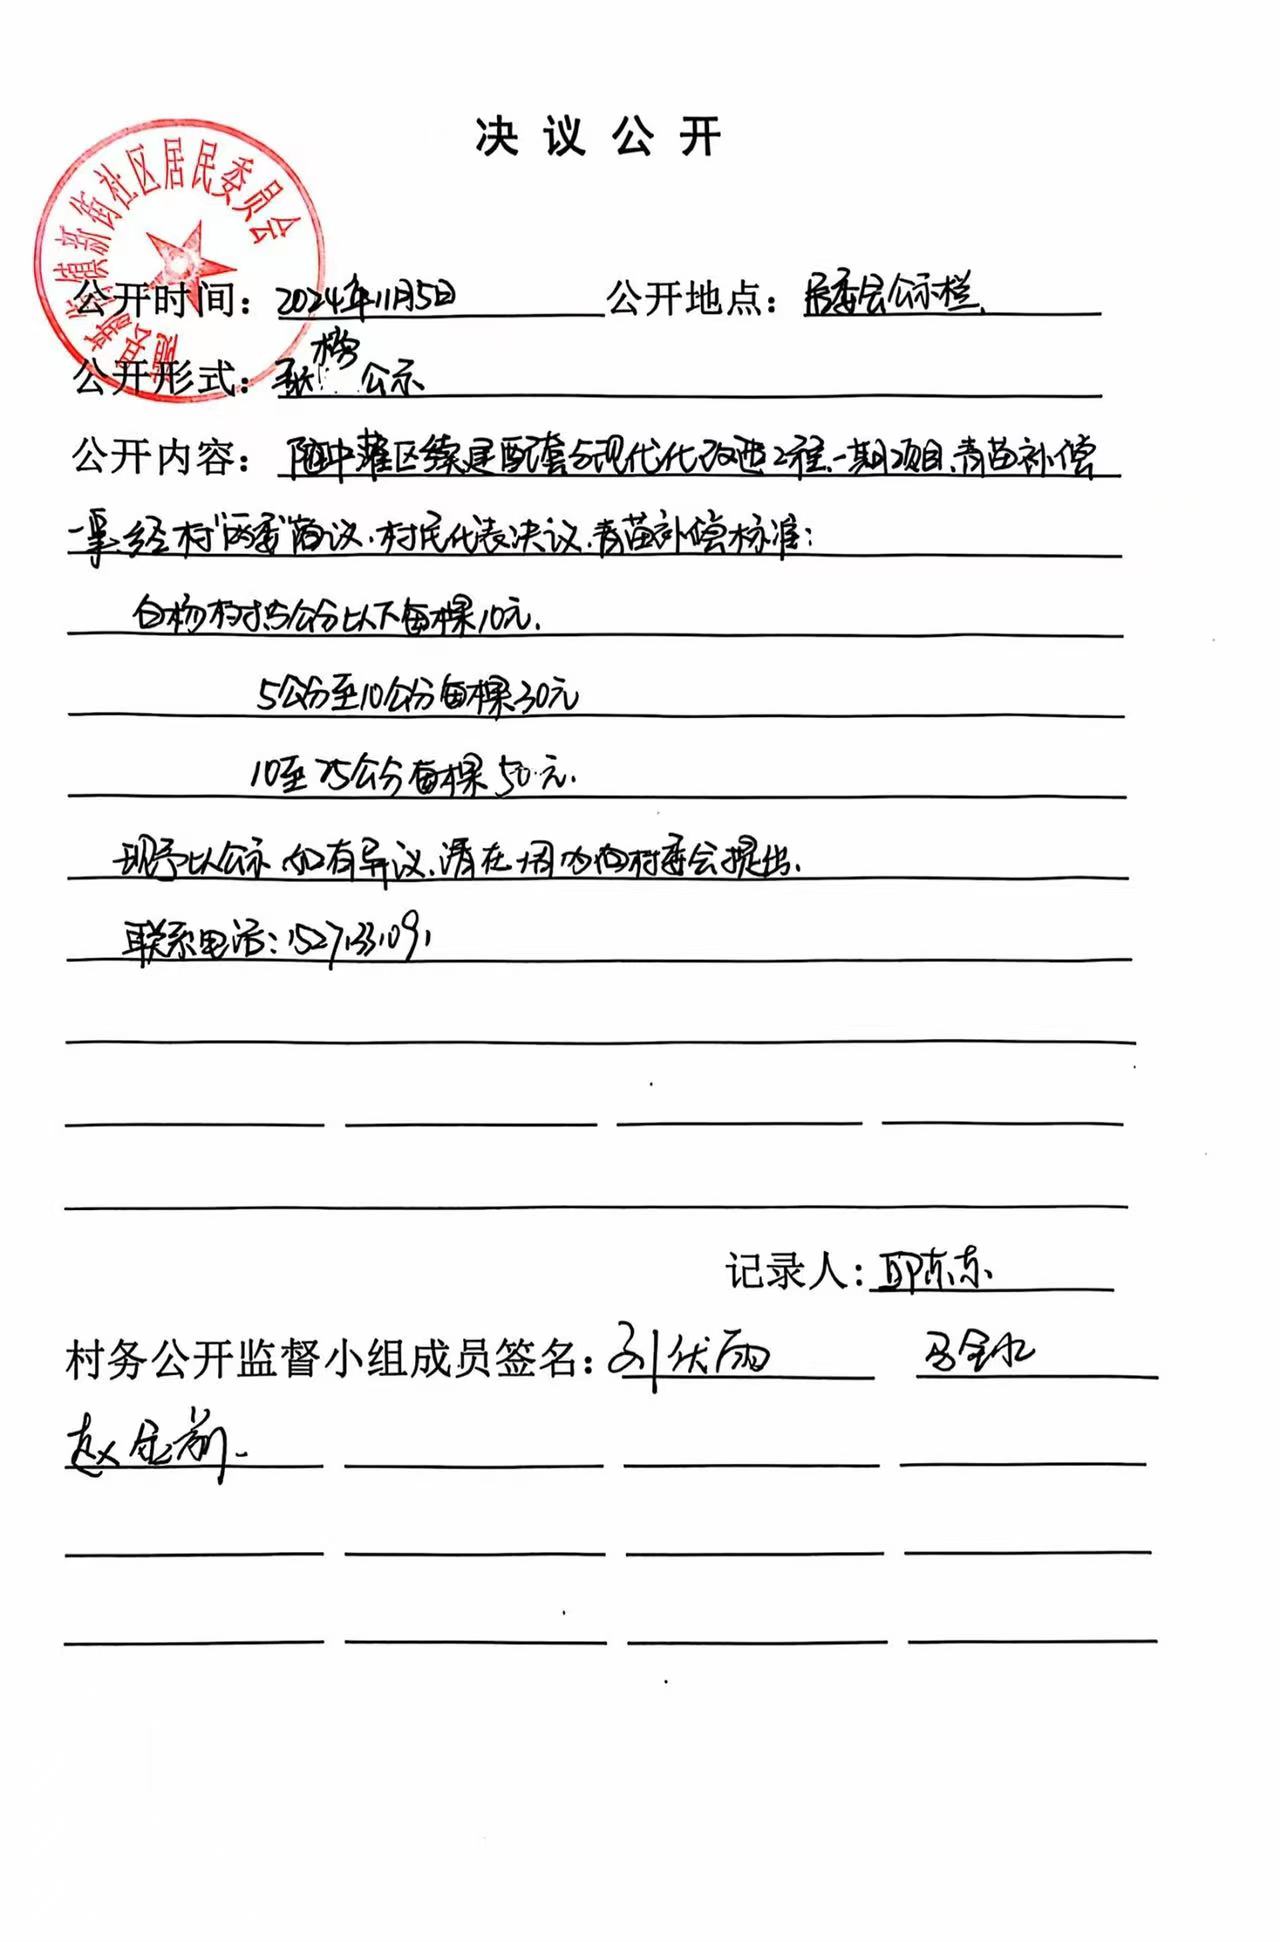 决议公开
随县尚市镇新街社区居民委员会
公开时间：2024年11月5日 公开地点：居委会公示栏
公开形式：张榜公示
公开内容：随中灌区续建配套与现代化改造工程一期项目青苗补偿
一事，经村"两委"商议，村民代表决议，青苗补偿标准：
白杨树5公分以下每棵10元.
5公分至10公分每棵30元
10至25公分每棵50元.
现予以公示，如有异议，请在一周内向村委会提出.
联系电话：
记录人：邱东东
村务公开监督小组成员签名：刘伏雨 马金
赵 前